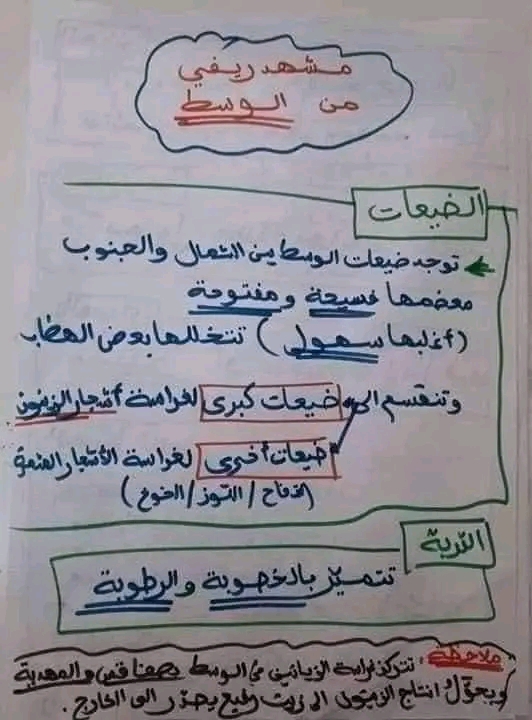 مشهد ريفي
من الوسط
الضيعات
توجد ضيعات الوسط بين الشمال والجنوب
معضمها فسيحة و مفتوحة
(أغلبها سهول) تتخللها بعض الهظاب
وتنقسم الى ضيعات كبرى لغراسة أشجار الزيتون
ضيعات أخرى لغراسة الأشجار المثمرة
(التفاح / اللوز / الخوخ)
التربة
تتميز بالخصوبة والرطوبة
ملاحظة: تتركز غراسة الزياتين في الوسط بصفاقس والمهدية
ويحول انتاج الزيتون الى زيت رفيع يصدر الى الخارج.